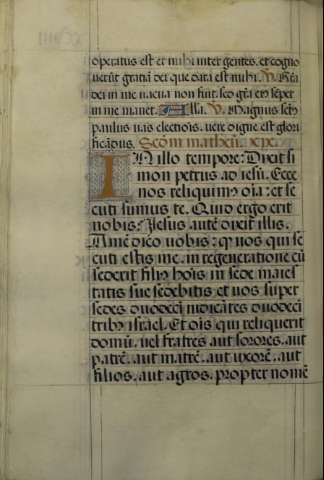 operatus est et mihi inter gentes. et cogno
verūt gratiā dei que data est mihi. V. Grā
dei in me vacua non fuit. sed grā eius semper
in me manet. Alla. V. Magnus scūs
paulus vas electiōis. vere digne est glori
ficādus. Scdm matheū. xix.
IN illo tempore: Dixit si
mon petrus ad iesū. Ecce
nos reliquim⁹ oīa: et se
cuti sumus te. Quid ergo erit
nobis? Iesus autē dixit illis.
Amē dico vobis: qꝫ vos qui se
cuti estis me. in regeneratione cū
sederit fili⁹ hoīs in sede maies
tatis sue sedebitis et vos super
sedes duodeci iudicātes duodeci
trib⁹ israel. Et oīs qui reliquerit
domū. vel fratres aut sorores. aut
patrē. aut matrē. aut uxorē. aut
filios. aut agros. propter nomē